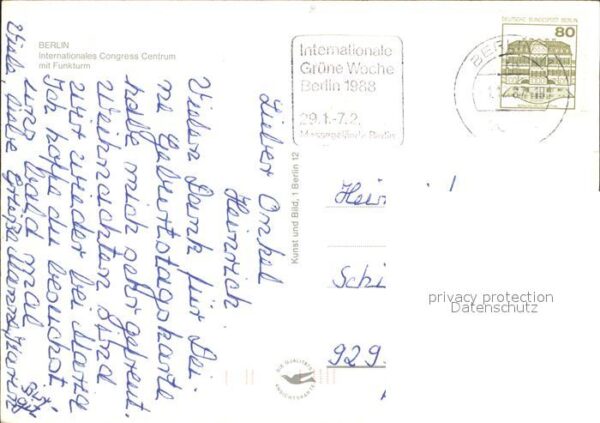 BERLIN
Internationales Congress Centrum
mit Funkturm
Internationale
Grüne Woche
Berlin 1988
29.1.-7.2.
Messegelände Berlin
BERLIN
DEUTSCHE BUNDESPOST BERLIN
80
Lieber Onkel
Heinrich.
Vielen Dank für Dei-
ne Geburtstagskarte
habe mich sehr gefreut.
Weihnachten sind
wir wieder bei Maria
Ich hoffe du besuchst
uns bald mal
Viele liebe Grüße
Kunst und Bild, 1 Berlin 12
Hein
Schi
929
privacy protection
Datenschutz
DIE QUALITÄTS
ANSICHTSKARTE